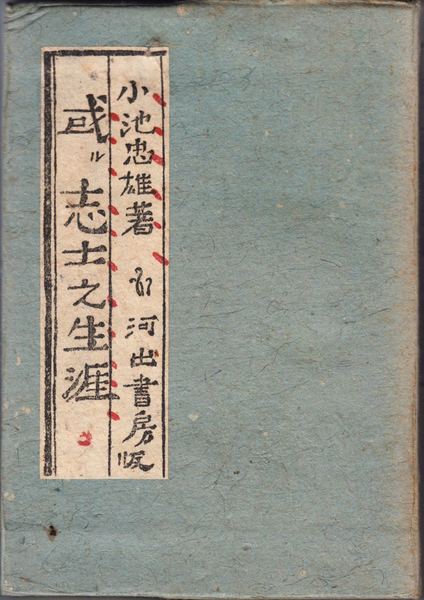 小池忠雄著 河出書房版
或ル志士之生涯